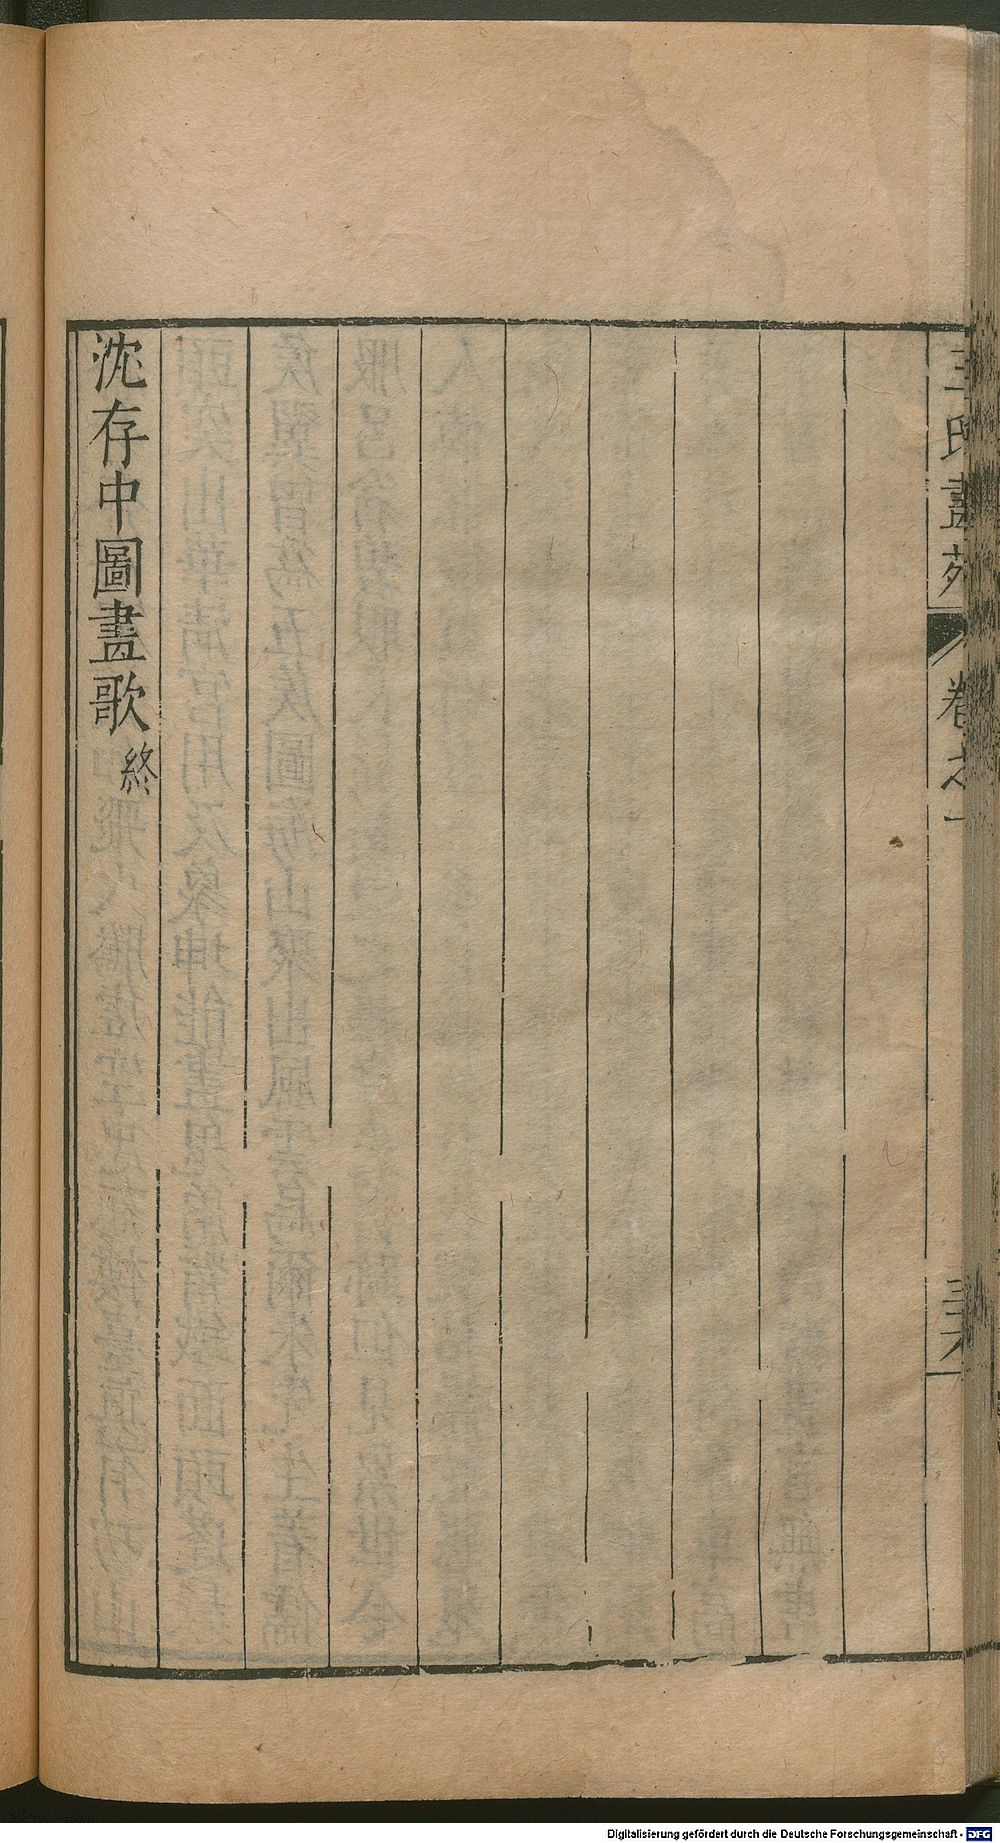 王氏畫苑
卷之一
三十六
沈存中圖畫歌終
Digitalisierung gefördert durch die Deutsche Forschungsgemeinschaft - DFG